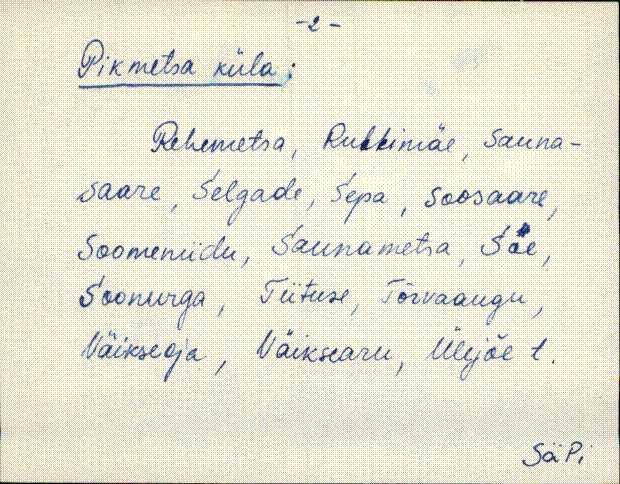 -2-
Pikmetsa küla:
Rehemetsa, Rukkimäe, Sauna-
saare, Selgade, Sepa, Soosaare,
Soomeniidu, Saunametsa, Söe,
Soonurga, Tiituse, Tõrvaaugu,
Väikseoja, Väiksearu, Ülejõe t.
SäPi